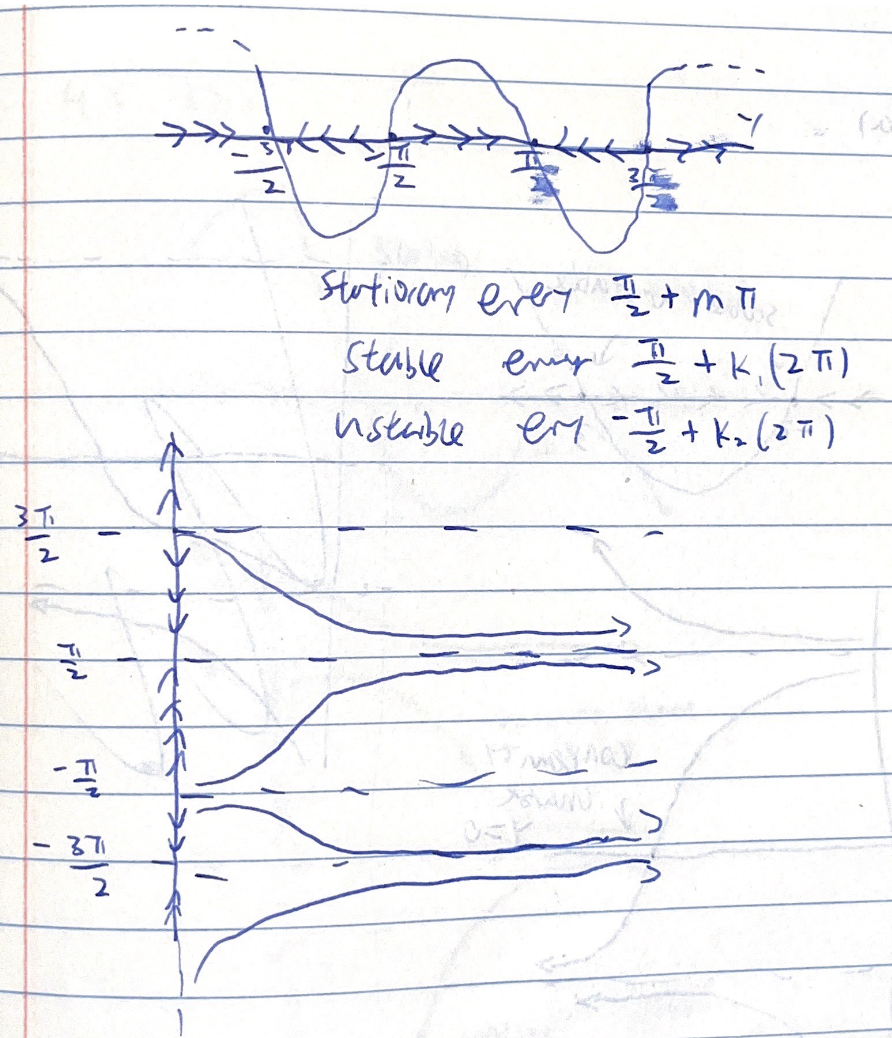 Y
-3π/2 -π/2 π/2 3π/2
Stationary every π/2 + m π
Stable every π/2 + K₁(2π)
Unstable every -π/2 + K₂(2π)
3π/2
π/2
-π/2
-3π/2